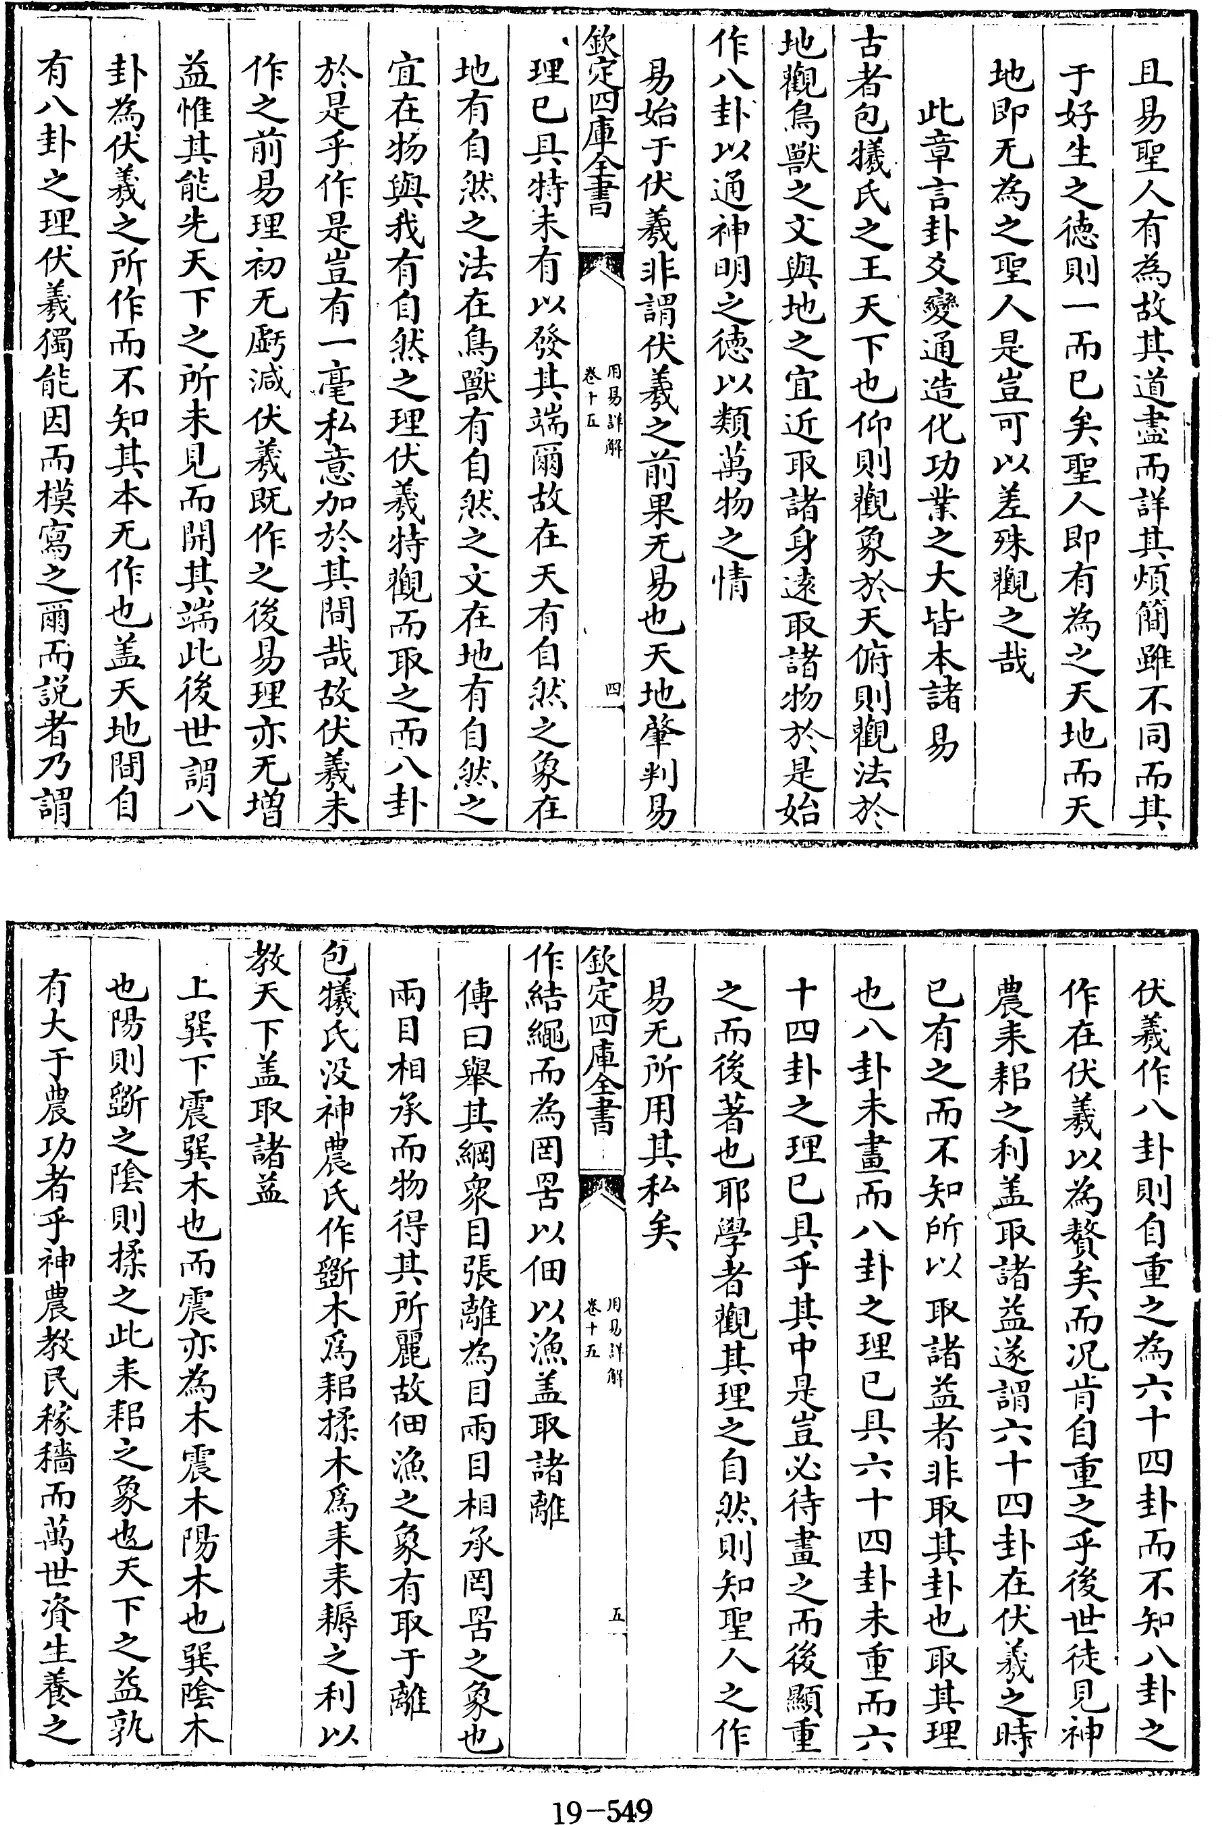 且易聖人有為故其道盡而詳其煩簡雖不同而其
于好生之德則一而已矣聖人即有為之天地而天
地即无為之聖人是豈可以差殊觀之哉
此章言卦爻變通造化功業之大皆本諸易
古者包犧氏之王天下也仰則觀象於天俯則觀法於
地觀鳥獸之文與地之宜近取諸身遠取諸物於是始
作八卦以通神明之德以類萬物之情
易始于伏羲非謂伏羲之前果无易也天地肇判易
欽定四庫全書
用易詳解
卷十五
四
理已具特未有以發其端爾故在天有自然之象在
地有自然之法在鳥獸有自然之文在地有自然之
宜在物與我有自然之理伏羲特觀而取之而八卦
於是乎作是豈有一毫私意加於其間哉故伏羲未
作之前易理初无虧減伏羲既作之後易理亦无増
益惟其能先天下之所未見而開其端此後世謂八
卦為伏羲之所作而不知其本无作也盖天地間自
有八卦之理伏羲獨能因而模寫之爾而説者乃謂
伏羲作八卦則自重之為六十四卦而不知八卦之
作在伏羲以為贅矣而况肯自重之乎後世徒見神
農耒耜之利盖取諸益遂謂六十四卦在伏羲之時
已有之而不知所以取諸益者非取其卦也取其理
也八卦未畫而八卦之理已具六十四卦未重而六
十四卦之理已具乎其中是豈必待畫之而後顯重
之而後著也耶學者觀其理之自然則知聖人之作
易无所用其私矣
欽定四庫全書
用易詳解
卷十五
五
作結繩而為罔罟以佃以漁盖取諸離
傳曰舉其綱衆目張離為目兩目相承罔罟之象也
兩目相承而物得其所麗故佃漁之象有取于離
包犧氏没神農氏作斵木爲耜揉木爲耒耒耨之利以
教天下盖取諸益
上巽下震巽木也而震亦為木震木陽木也巽陰木
也陽則斵之陰則揉之此耒耜之象也天下之益孰
有大于農功者乎神農教民稼穡而萬世資生養之
19-549